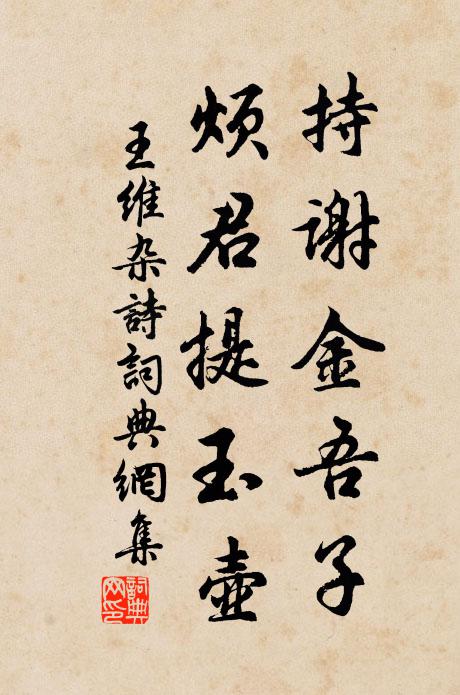 持谢金吾子
烦君提玉壶
王维杂詩詞典網集
詞典网印